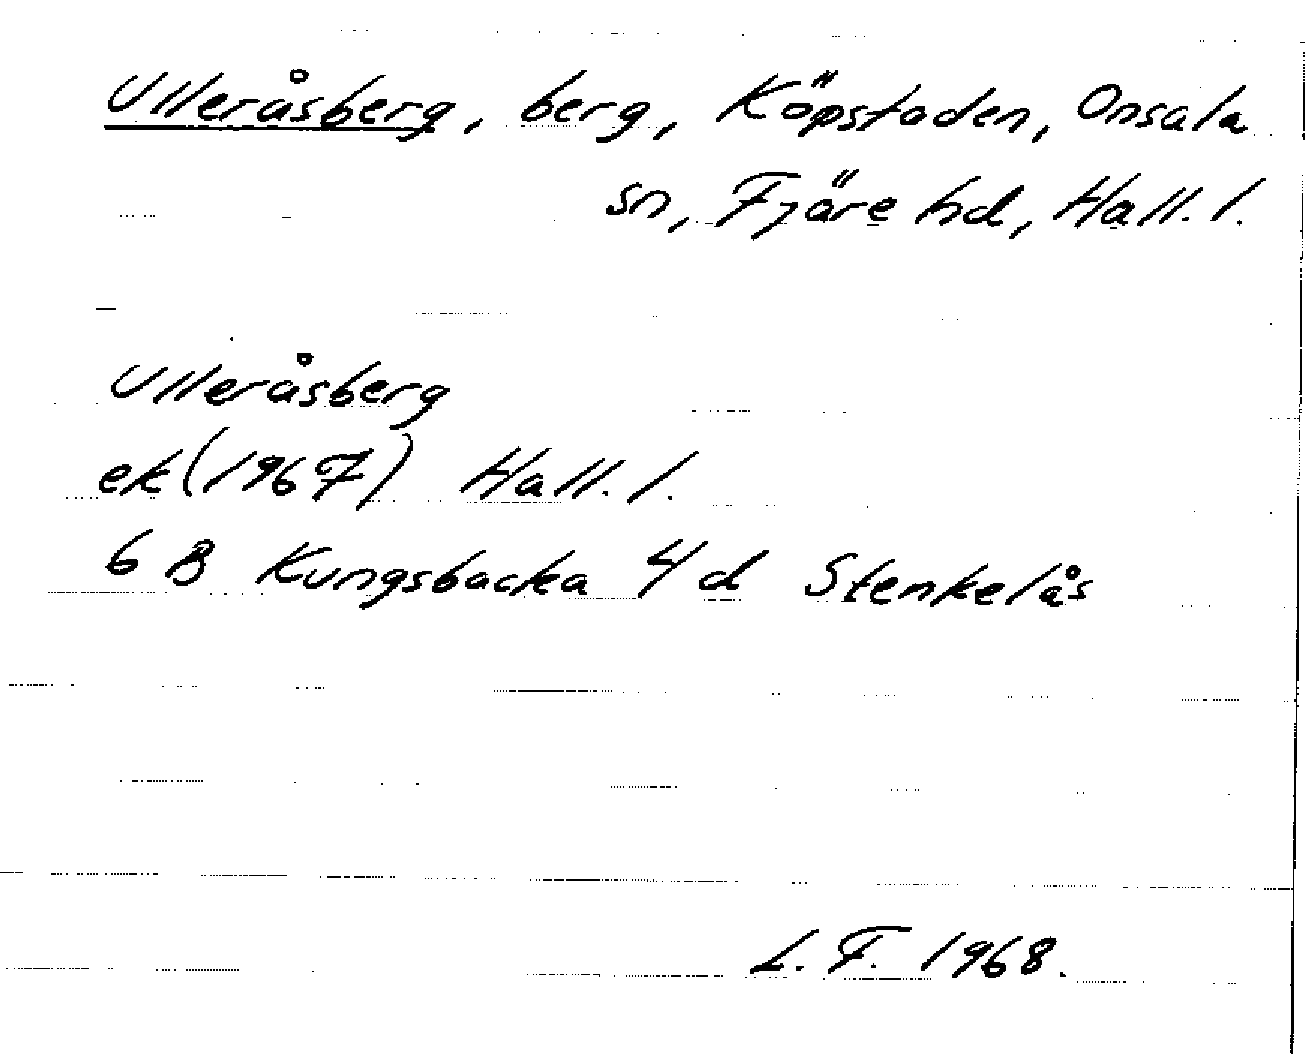 Ulleråsberg, berg, Köpstaden, Onsala
sn, Fjäre hd, Hall. l.
Ulleråsberg
ek (1967) Hall. l.
6 B Kungsbacka 4 d Stenkelås
L. F. 1968.